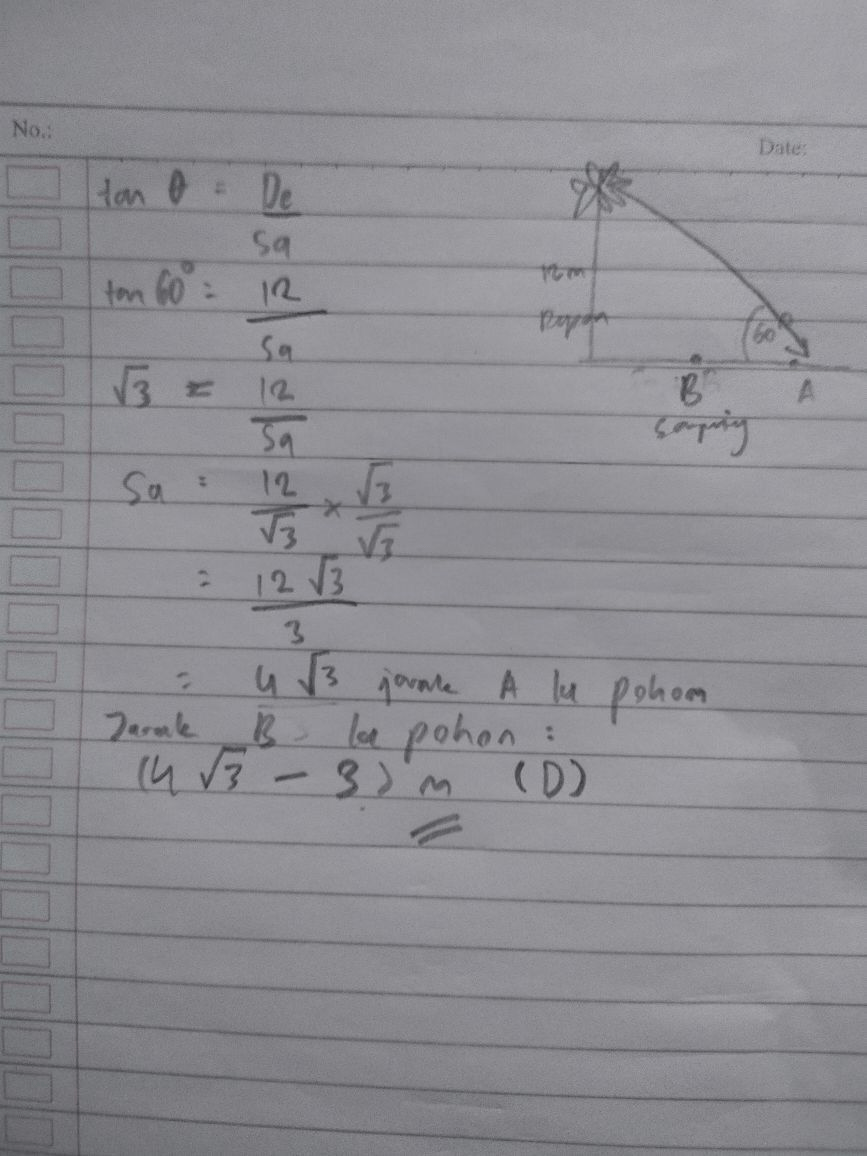 No.:
Date:
tan θ = De
Sa
tan 60° = 12
Sa
√3 = 12
Sa
Sa = 12 × √3
√3 √3
= 12 √3
3
= 4 √3 jarak A ke pohon
Jarak B ke pohon :
(4 √3 - 3) m (D)
12 m
Depan
60°
B
A
samping